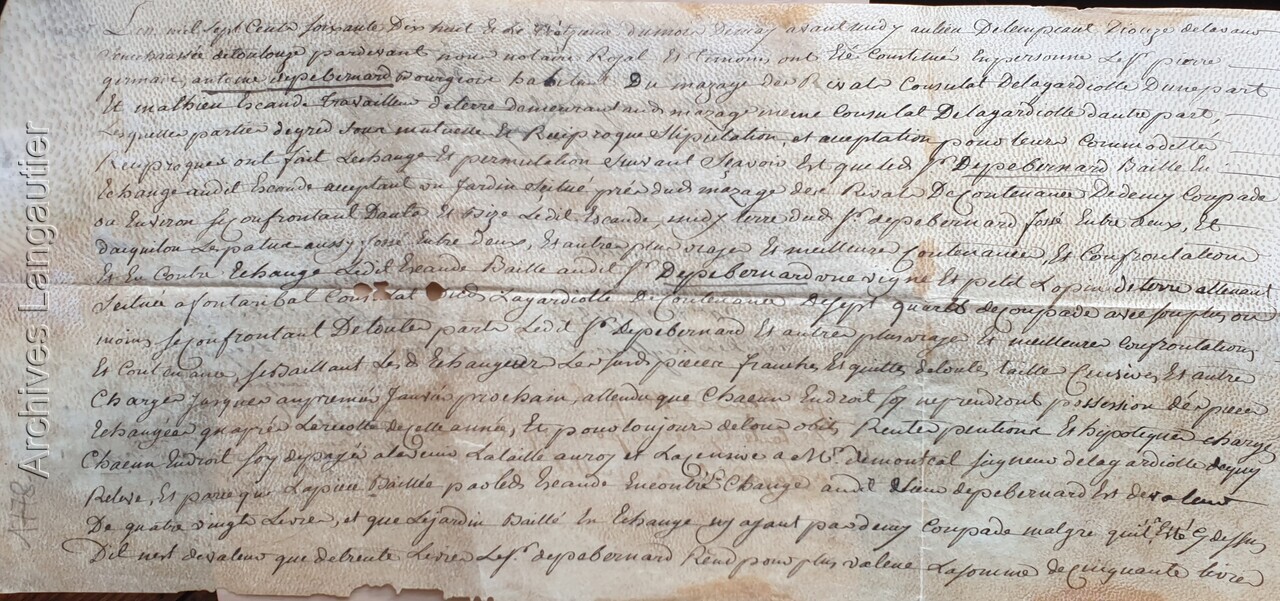 L'an mil sept Cents soixante Dix huit Et Le treizieme du mois de may avant midy au lieu De lempeaut Dioceze de lavaur
Senechaussée de toulouze pardevant nous notaire Royal Et temoins ont Eté Constitués En personne Le Sr pierre
germain antoine depebernard Bourgeois habitant Du mazage des Rivals Consulat Delagardiolle Dune part
Et mathieu Escande Travailleur de terre demeurant aud mazage meme Consulat Delagardiolle dautre part,
Lesquelles parties de gred sous mutuelle Et Reciproque Stipulation, et acceptation pour leurs Commodittés
Reciproques ont fait Lechange Et permutation suivant Scavoir Est que led Sr Depebernard Baille En
Echange audit Escande acceptant un Jardin scitué prés dud mazage des Rivals De Contenance De demy Coupade
ou Environ se Confrontant Dauta Et Bize Ledit Escande, midy terre dud Sr depebernard fossé Entre deux, Et
daquilon Le patus aussy fossé Entre deux, Et autres plus vrayes Et meilleures Contenance Et Confrontations
Et En Contre Echange Ledit Escande Baille audit Sr Depebernard une vigne Et petit Lopin de terre attenant
scitués a fontaribal Consulat dud Lagardiolle De Contenance De sept quarts de coupade avec son plus ou
moins, se Confrontant De toutes parts Ledit Sr Depebernard Et autres plus vrayes Et meilleures Confrontations
Et Contenance, se Baillant Lesd Echangeurs Les susd pieces franches Et quittes de toutes tailles Censives Et autres
Charges jusques au premier Janvier prochain, attendu que Chacun Endroit soy ne prendront possession des pieces
Echangées qu'aprés La recolte de cette année, Et pour toujours de tous obits Rentes pentions Et hypoteques charge
Chacun Endroit soy de payer a lavenir La taille au roy et La censive a Mr. demontcal seigneur de lagardiolle dequy
Releve, Et parce que La piece Baillée par led Escande En contre Change audit Sieur depebernard Est de valeur
De quatre vingts Livres, et que Le jardin Baillé En Echange ny ayant pas demy Coupade malgre quil Est Cy dessus
Dit nest de valeur que de trente Livres Le Sr. depebernard Rend pour plus value La somme de cinquante livres
Archives Langautier
1778